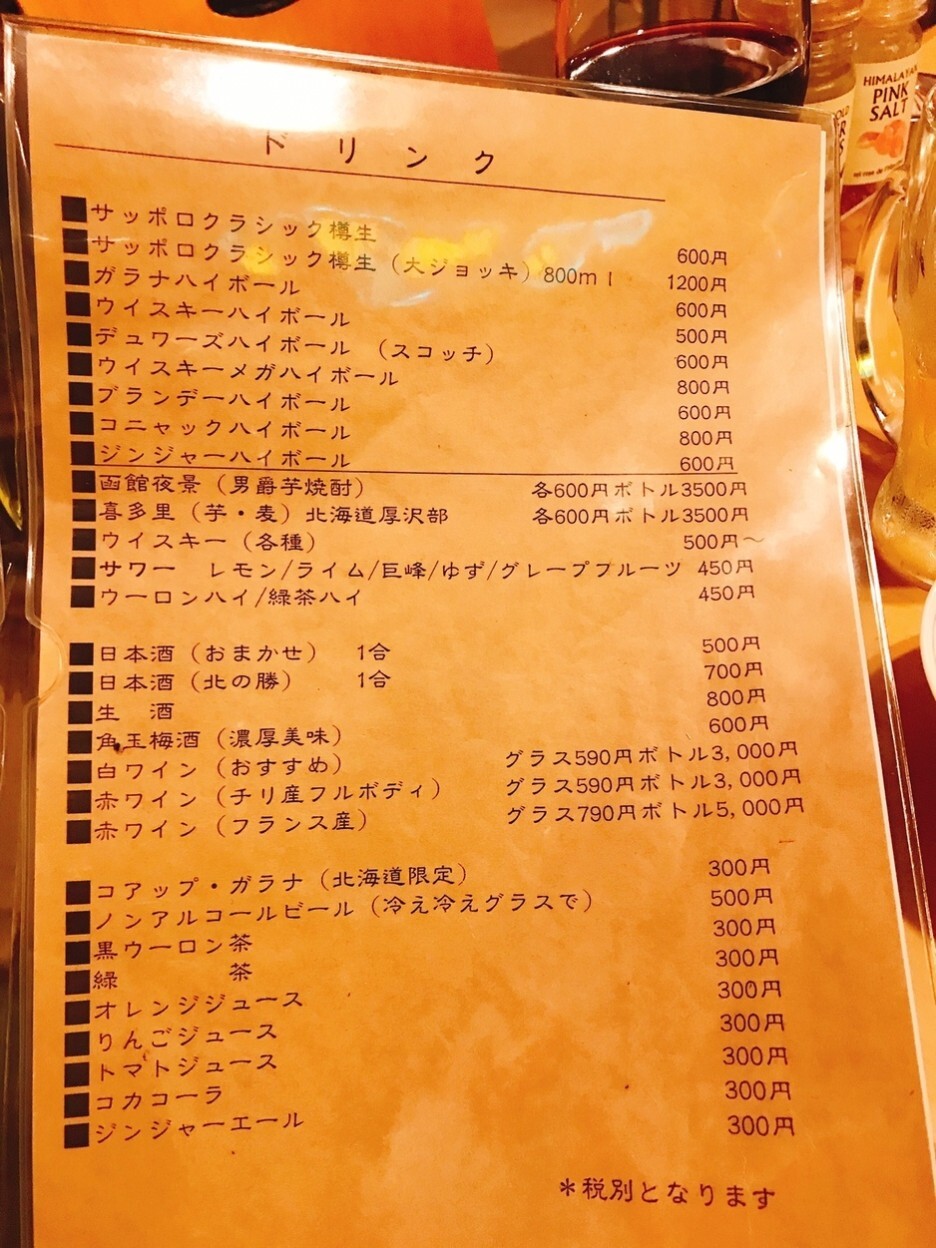 ドリンク
■サッポロクラシック樽生 600円
■サッポロクラシック樽生（大ジョッキ）800ml 1200円
■ガラナハイボール 600円
■ウイスキーハイボール 500円
■デュワーズハイボール （スコッチ） 600円
■ウイスキーメガハイボール 800円
■ブランデーハイボール 600円
■コニャックハイボール 800円
■ジンジャーハイボール 600円
■函館夜景（男爵芋焼酎） 各600円ボトル3500円
■喜多里（芋・麦）北海道厚沢部 各600円ボトル3500円
■ウイスキー（各種） 500円～
■サワー レモン/ライム/巨峰/ゆず/グレープフルーツ 450円
■ウーロンハイ/緑茶ハイ 450円
■日本酒（おまかせ） 1合 500円
■日本酒（北の勝） 1合 700円
■生 酒 800円
■角玉梅酒（濃厚美味） 600円
■白ワイン（おすすめ） グラス590円ボトル3,000円
■赤ワイン（チリ産フルボディ） グラス590円ボトル3,000円
■赤ワイン（フランス産） グラス790円ボトル5,000円
■コアップ・ガラナ（北海道限定） 300円
■ノンアルコールビール（冷え冷えグラスで） 500円
■黒ウーロン茶 300円
■緑 茶 300円
■オレンジジュース 300円
■りんごジュース 300円
■トマトジュース 300円
■コカコーラ 300円
■ジンジャーエール 300円
＊税別となります
HIMALAYAN
PINK
SALT